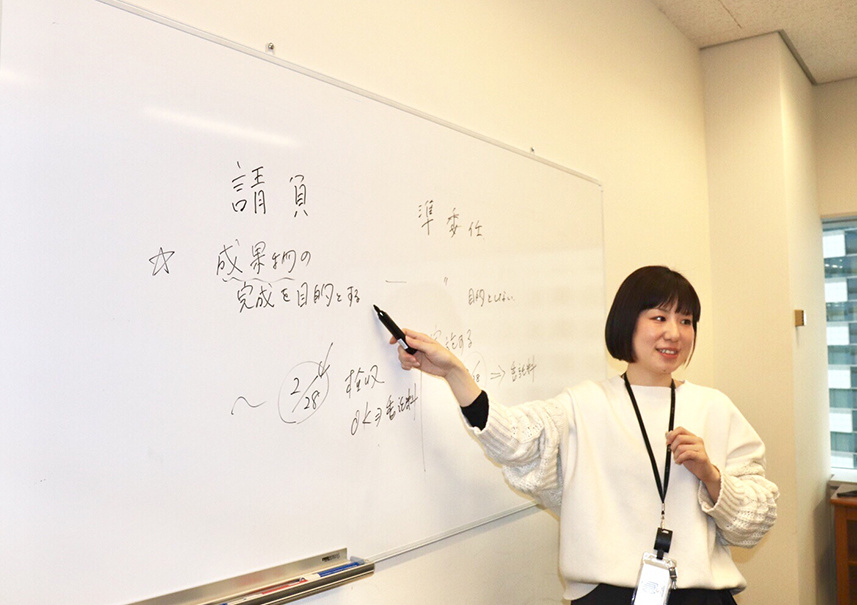 請負
☆ 成果物の
完成を目的とする
〜 2/28 検収
OK⇒委託料
準委任
― 〃
目的としない
する
⇒ 委託料